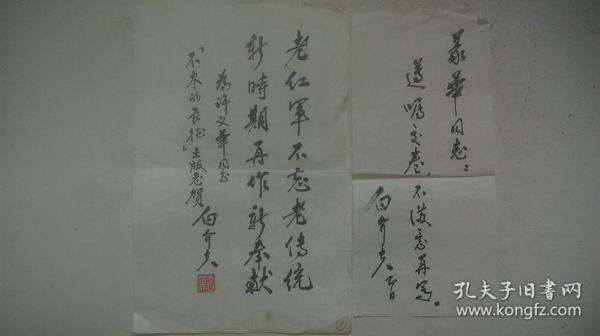 義華同志：
遵嘱交卷，不满意再写。
白介夫
老红军不忘老传统
新時期再作新奉献
為许义華同志
「不尽的长征」出版志贺
白介夫
孔夫子旧书网
www.kongfz.com